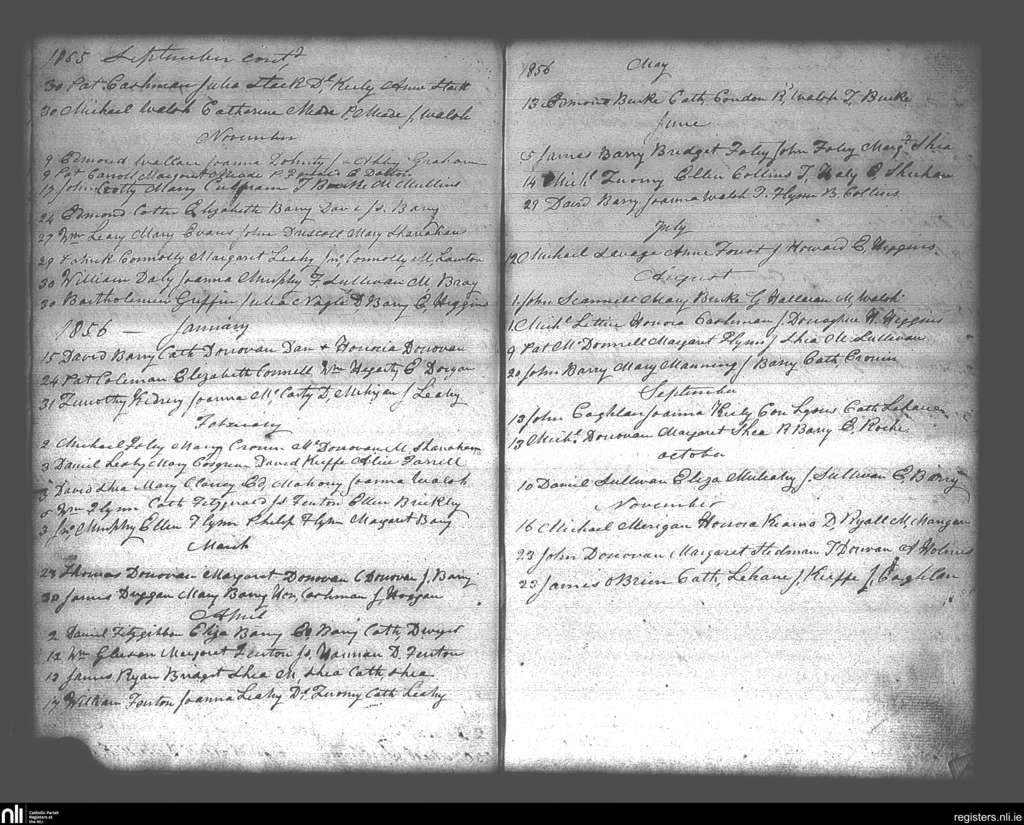 1855 September contd
30 Pat Cashman Julia Stack Dl Kiely Anne Stack
30 Michael Walsh Catharine Meade P. Meade J. Walsh
November
9 Edmond Wallace Joanna Doherty J Graham
9 Pat Carroll Margaret Meade P. E Dalton
17 John Mary T Bourke M Mullins
24 Edmond Cotter Elizabeth Barry Dave Js. Barry
27 Wm Leary Mary Evans John Driscoll Mary Shanahan
29 Patrick Connolly Margaret Leahy Jno Connolly M Lawton
30 William Daly Joanna Murphy F Sullivan M Bray
30 Bartholomew Griffin Julia Nagle D, Barry E, Higgins
1856 — January
15 David Barry Cath Donovan Dan & Honoria Donovan
24 Pat Coleman Elizabeth Connell Wm Hegarty E Dorgan
31 Timothy Kidney Joanna McCarty D, Mehigan J Leahy
February
2 Michael Foley Mary Cronin Ml Donovan M. Shanahan
3 Daniel Leahy Mary Cosgrove David Keiffe Alice Farrell
5 David Shea Mary Clancy Ed, Mahony Joanna Walsh
5 Wm Flynn Cath Fitzgerald Js Fenton Ellen Buckley
5 Jno Murphy Ellen Flynn Philip Flynn Margaret Barry
March
28 Thomas Donovan Margaret Donovan C Donovan J, Barry
30 James Duggan Mary Barry Wm, Cashman J, Hoggan
April
2 Daniel Fitzgibbon Eliza Barry Ed Barry Cath, Dwyer
12 Wm Gleeson Margaret Fenton Js, Hannan D. Fenton
13 James Ryan Bridget Shea M, Shea Cath, Shea
17 William Fenton Joanna Leahy Dl Twomy Cath Leahy
1856 May
13 Edmond Burke Cath, Condon R, Walsh T, Burke
June
5 James Barry Bridget Foley John Foley Margt Shea
14 Michl Twomy Ellen Collins T, Healy E, Sheehan
29 David Barry Joanna Walsh T. Flynn B. Collins
July
12 Michael Savage Anne J Howard E, Higgins
August
1 John Scannell Mary Burke G Hallaran M, Walsh
1 Michl Honora Cashman J Donoghue H Higgins
9 Pat McDonnell Margaret Flynn J Shea M Sullivan
20 John Barry Mary Manning J Barry Cath, Cronin
September
13 John Coghlan Joanna Kiely Con Lyons Cath Lehane
13 Michl Donovan Margaret Shea R Barry E. Roche
October
10 Daniel Sullivan Eliza Mulcahy J, Sullivan E Barry
November
16 Michael Merigan Honora Kearns D, Ryall M, Mangan
23 John Donovan Margaret Stedman T Donovan Holmes
23 James O'Brien Cath, Lehane J, Keiffe J, Coghlan
nli Catholic Parish
Registers at
the NLI
registers.nli.ie